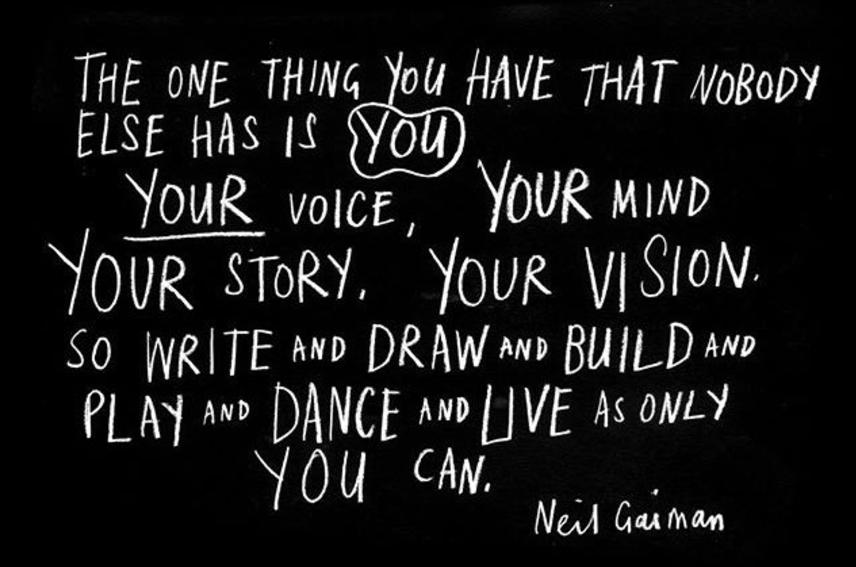 THE ONE THING YOU HAVE THAT NOBODY
ELSE HAS IS YOU
YOUR VOICE, YOUR MIND
YOUR STORY. YOUR VISION.
SO WRITE AND DRAW AND BUILD AND
PLAY AND DANCE AND LIVE AS ONLY
YOU CAN.
Neil Gaiman